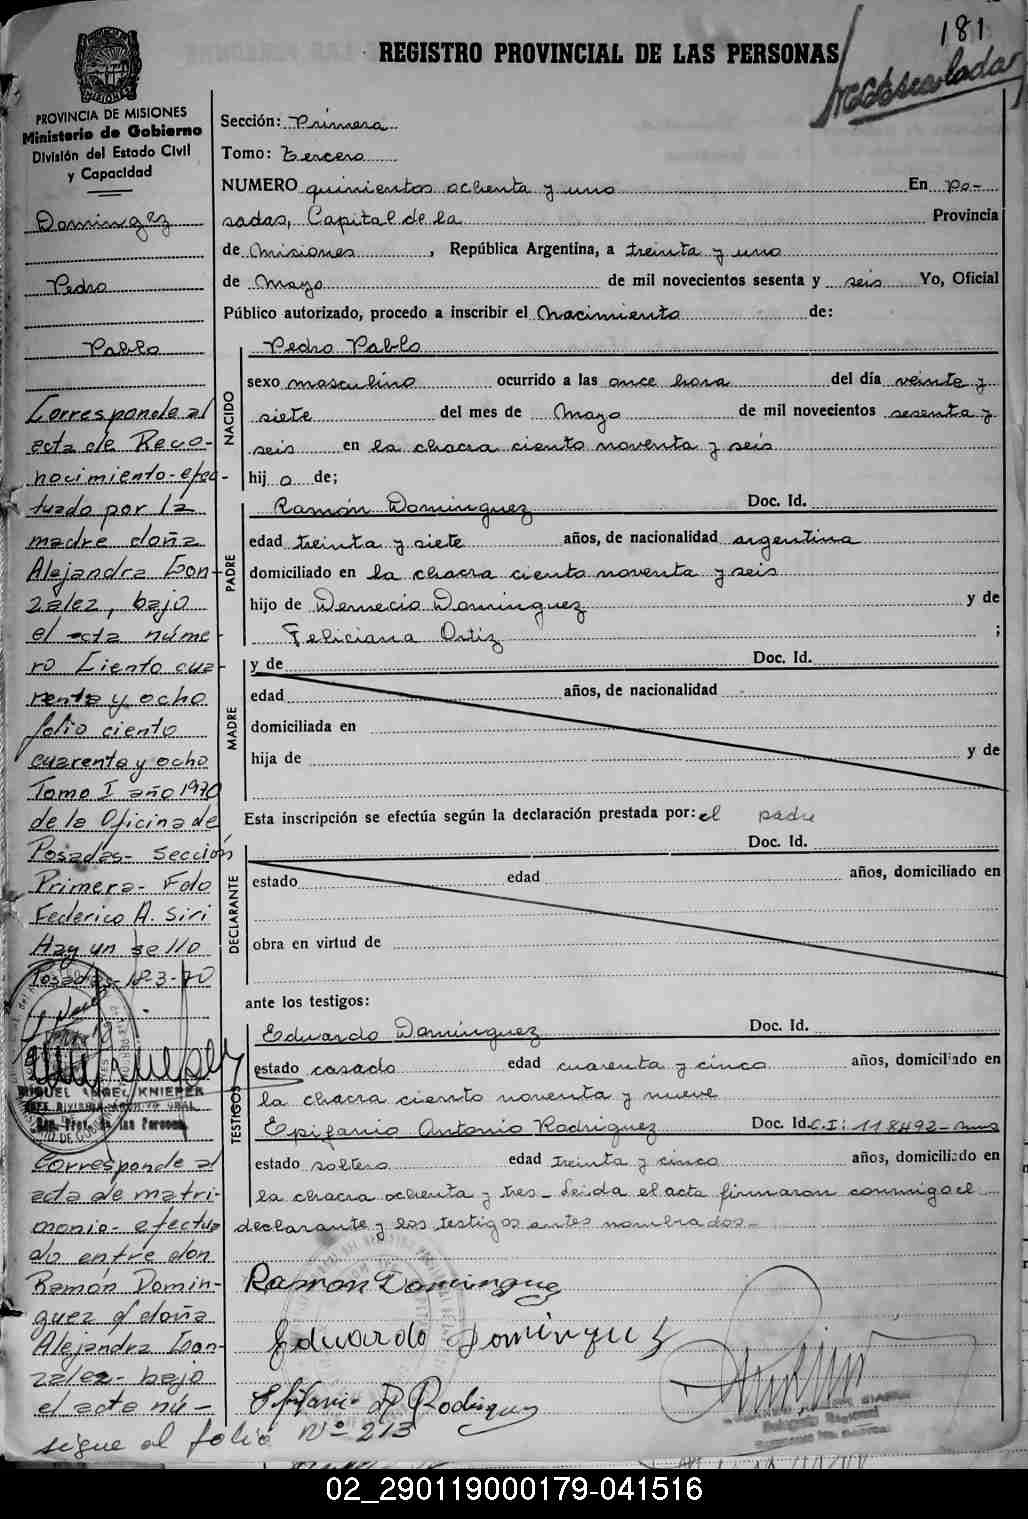 181
REGISTRO PROVINCIAL DE LAS PERSONAS
PROVINCIA DE MISIONES
Ministerio de Gobierno
División del Estado Civil
y Capacidad
Dominguez
Pedro
Pablo
Corresponde al
acta de Reco-
nocimiento-efec-
tuado por la
madre doña
Alejandra Gon-
zalez, bajo
el acta núme-
ro Ciento cua-
renta y ocho
folio ciento
cuarenta y ocho
Tomo I año 1970
de la Oficina de
Posadas- sección
Primera- Fdo
Federico A. Siri
Hay un sello
Posadas-18-3-70
MIGUEL ANGEL KNIEPER
JEFE DIVISION ARCHIVO GRAL.
Reg. Prov. de las Personas
Corresponde al
acta de matri-
monio- efectua-
do entre don
Ramón Domin-
guez y doña
Alejandra Gon-
zalez- bajo
el acta nú-
sigue al folio Nº 213
Sección: Primera
Tomo: Tercero
NUMERO quinientos ochenta y uno En Po-
sadas, Capital de la Provincia
de Misiones, República Argentina, a treinta y uno
de Mayo de mil novecientos sesenta y seis Yo, Oficial
Público autorizado, procedo a inscribir el Nacimiento de:
NACIDO
Pedro Pablo
sexo masculino ocurrido a las once hora del día veinte y
siete del mes de Mayo de mil novecientos sesenta y
seis en la chacra ciento noventa y seis
hij o de;
PADRE
Ramón Dominguez Doc. Id.
edad treinta y siete años, de nacionalidad argentina
domiciliado en la chacra ciento noventa y seis
hijo de Demecio Dominguez y de
Feliciana Ortiz ;
MADRE
y de Doc. Id.
edad años, de nacionalidad
domiciliada en
hija de y de
Esta inscripción se efectúa según la declaración prestada por: el padre
DECLARANTE
Doc. Id.
estado edad años, domiciliado en
obra en virtud de
ante los testigos:
TESTIGOS
Eduardo Dominguez Doc. Id.
estado casado edad cuarenta y cinco años, domiciliado en
la chacra ciento noventa y nueve
Epifanio Antonio Rodriguez Doc. Id. C.I: 118492-Mnes
estado soltero edad treinta y cinco años, domiciliado en
la chacra ochenta y tres_ Leida el acta firmaron conmigo el
declarante y los testigos antes nombrados.-
Ramon Dominguez
Eduardo Dominguez
Epifanio A Rodriguez
Delegado Regional
02_290119000179-041516